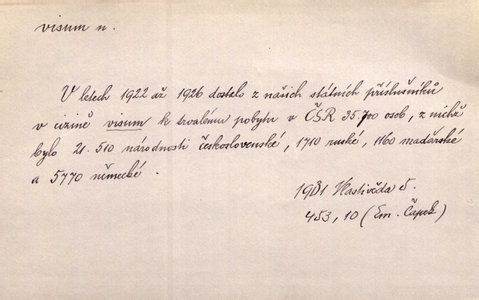 visum n.
V letech 1922 až 1926 dostalo z našich státních příslušníků
v cizině visum k trvalému pobytu v ČSR 35.700 osob, z nichž
bylo 21.510 národnosti československé, 1710 ruské, 1160 maďarské
a 5770 německé.
1931 Vlastivěda 5.
453, 10 (Em. Čapek)